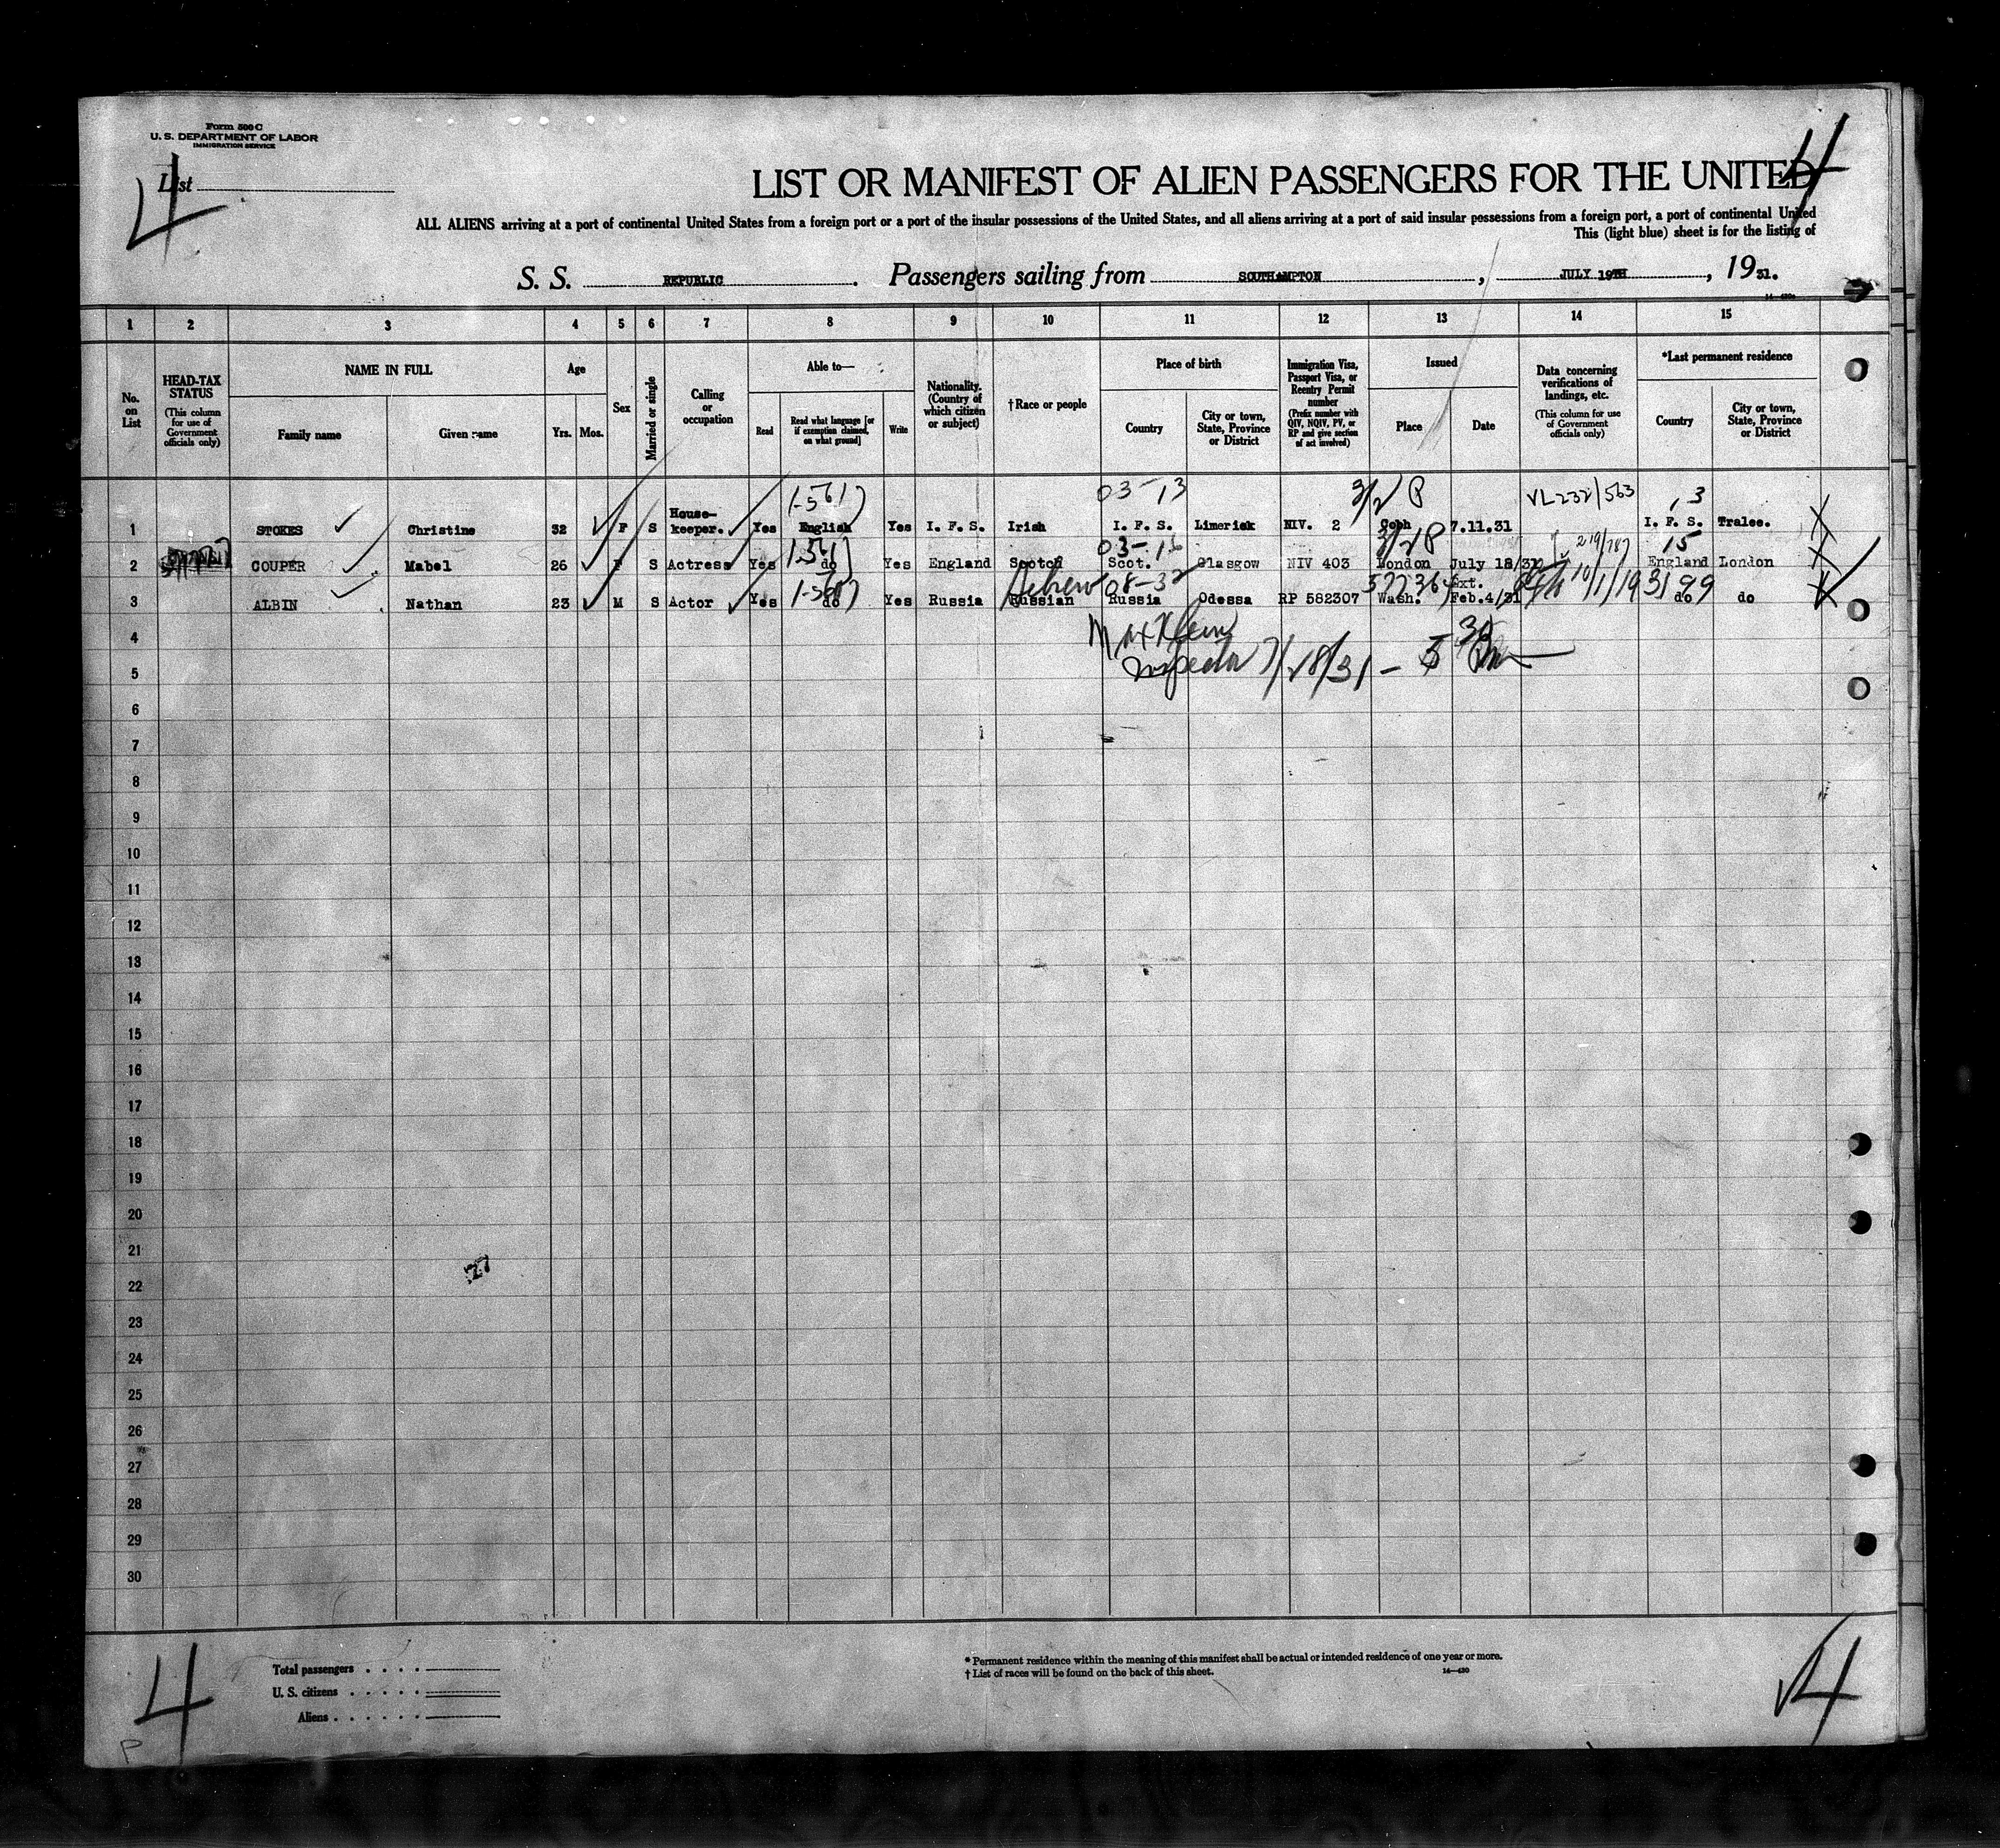 Form 500 C
U. S. DEPARTMENT OF LABOR
IMMIGRATION SERVICE
List
4
4
LIST OR MANIFEST OF ALIEN PASSENGERS FOR THE UNITED
ALL ALIENS arriving at a port of continental United States from a foreign port or a port of the insular possessions of the United States, and all aliens arriving at a port of said insular possessions from a foreign port, a port of continental United
This (light blue) sheet is for the listing of
S. S. REPUBLIC. Passengers sailing from SOUTHAMPTON, JULY 19TH, 1931.
1 2 3 4 5 6 7 8 9 10 11 12 13 14 15
No. on List
HEAD-TAX STATUS
(This column for use of Government officials only)
NAME IN FULL
Family name
Given name
Age
Yrs. Mos.
Sex
Married or single
Calling or occupation
Able to—
Read
Read what language [or if exemption claimed, on what ground]
Write
Nationality. (Country of which citizen or subject)
†Race or people
Place of birth
Country
City or town, State, Province or District
Immigration Visa, Passport Visa, or Reentry Permit number
(Prefix number with QIV, NQIV, PV, or RP and give section of act involved)
Issued
Place
Date
Data concerning verifications of landings, etc.
(This column for use of Government officials only)
*Last permanent residence
Country
City or town, State, Province or District
03-13
VL232/563
1 STOKES Christine 32 F S House-keeper. Yes English Yes I. F. S. Irish I. F. S. Limerick NIV. 2 Cobh 7.11.31 I. F. S. Tralee.
15
2 COUPER Mabel 26 F S Actress Yes do Yes England Scotch Scot. Glasgow NIV 403 London July 18/31 England London
Hebrew 08-32 Ext.
3 ALBIN Nathan 23 M S Actor Yes do Yes Russia Russian Russia Odessa RP 582307 Wash. Feb.4/31 do do
4
Inspector 7/28/31 -
5
6
7
8
9
10
11
12
13
14
15
16
17
18
19
20
21
22
23
24
25
26
27
28
29
30
Total passengers
U. S. citizens
Aliens
* Permanent residence within the meaning of this manifest shall be actual or intended residence of one year or more.
† List of races will be found on the back of this sheet.
14—430
4
4
P